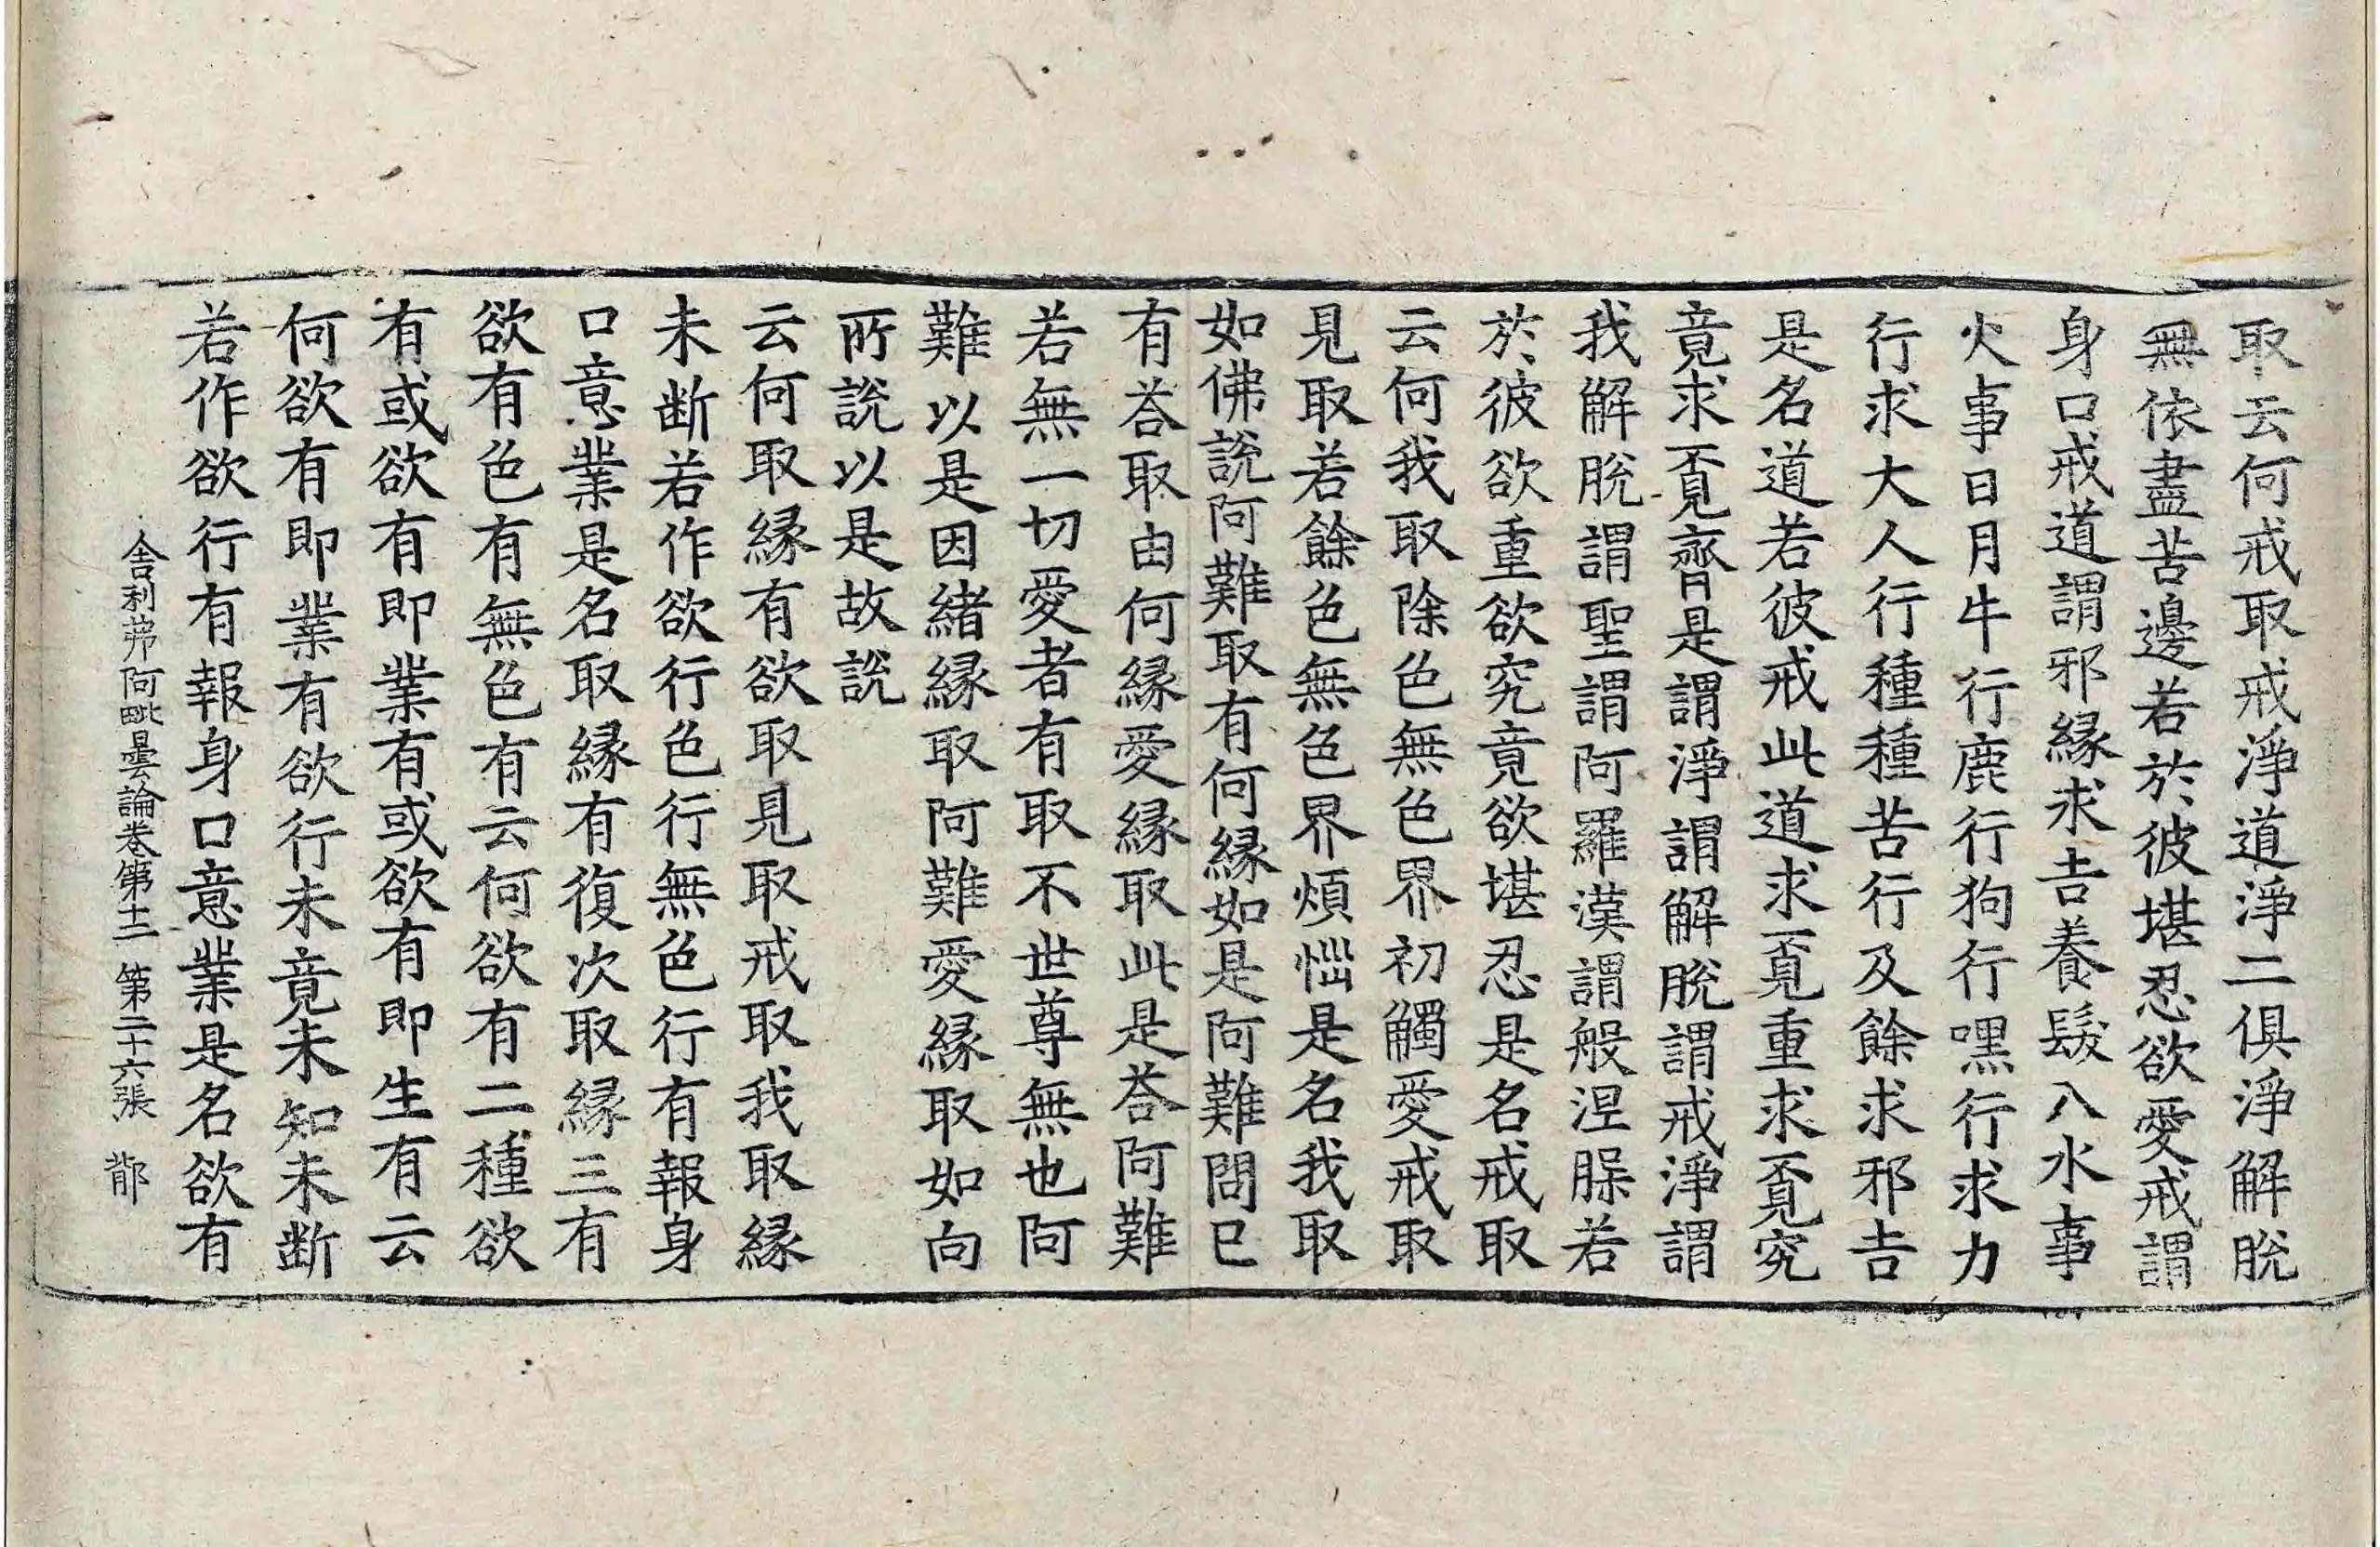 取云何戒取戒淨道淨二俱淨解脫
無依盡苦邊若於彼堪忍欲愛戒謂
身口戒道謂邪緣求吉養髮入水事
火事日月牛行鹿行狗行嘿行求力
行求大人行種種苦行及餘求邪吉
是名道若彼戒此道求覔重求覔究
竟求覔齊是謂淨謂解脫謂戒淨謂
我解脫謂聖謂阿羅漢謂般涅槃若
於彼欲重欲究竟欲堪忍是名戒取
云何我取除色無色界初觸愛戒取
見取若餘色無色界煩惱是名我取
如佛說阿難取有何緣如是阿難問已
有荅取由何緣愛緣取此是荅阿難
若無一切愛者有取不世尊無也阿
難以是因緒緣取阿難愛緣取如向
所說以是故說
云何取緣有欲取見取戒取我取緣
未断若作欲行色行無色行有報身
口意業是名取緣有復次取緣三有
欲有色有無色有云何欲有二種欲
有或欲有即業有或欲有即生有云
何欲有即業有欲行未竟未知未断
若作欲行有報身口意業是名欲有
舍利弗阿毗曇論卷第十二 第二十六張